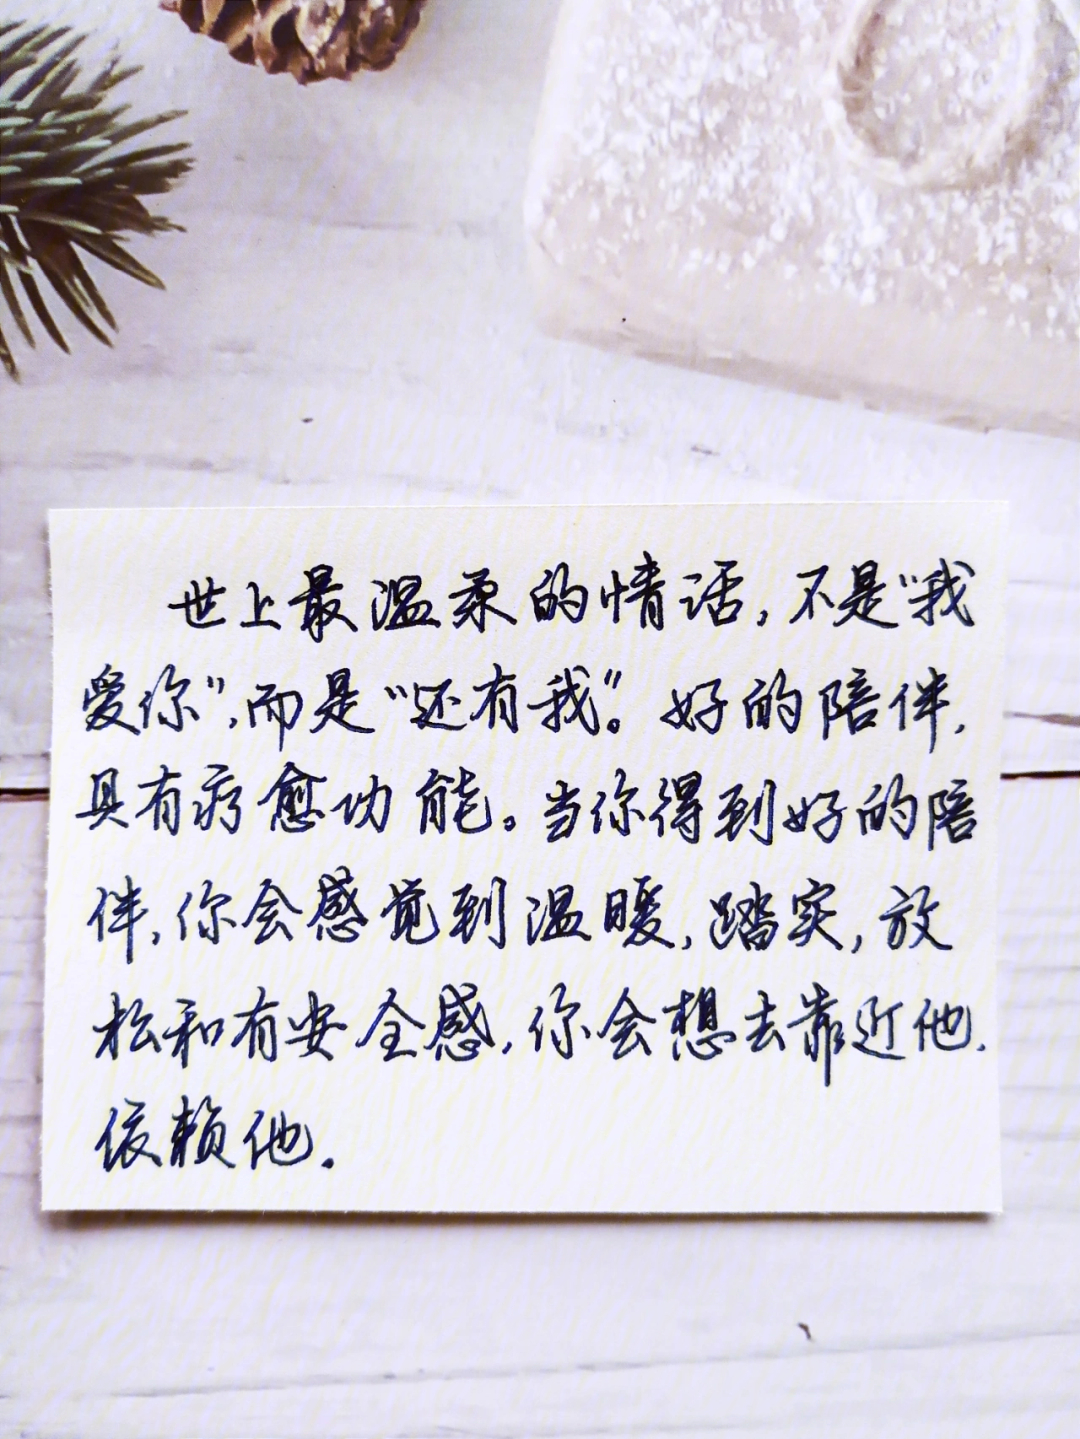 世上最温柔的情话,不是“我
爱你”,而是“还有我”。好的陪伴,
具有疗愈功能。当你得到好的陪
伴,你会感觉到温暖,踏实,放
松和有安全感,你会想去靠近他.
依赖他.